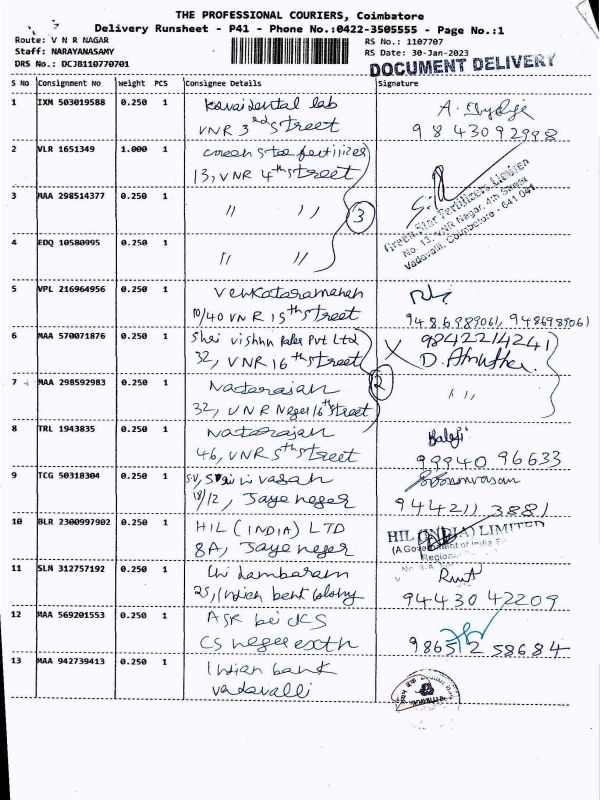 THE PROFESSIONAL COURIERS, Coimbatore
Delivery Runsheet - P41 - Phone No.:0422-3505555 - Page No.:1
Route: V N R NAGAR
Staff: NARAYANASAMY
DRS No.: DCJB110770701
RS No.: 1107707
RS Date: 30-Jan-2023
DOCUMENT DELIVERY
S No Consignment No Weight PCS Consignee Details Signature
1 IXM 503019588 0.250 1 dental lab
VNR 3rd street
9843092998
2 VLR 1651349 1.000 1 Green star fertilizer
13, VNR 4th street
Green Star Fertilizers Limited
No. 13, VNR Nagar, 4th Street
Vadavalli, Coimbatore - 641 041
3 MAA 298514377 0.250 1 " "
3
4 EDQ 10580995 0.250 1 " "
5 VPL 216964956 0.250 1 Venkataramanan
10/40 VNR 15th street
9486989061, 9486989061
6 MAA 570071876 0.250 1 Shri vishnu Pvt Ltd
32, VNR 16th street
9842214241
7 MAA 298592983 0.250 1 Natarajan
32, VNR Nager 16th street
2
" "
8 TRL 1943835 0.250 1 Natarajan
46, VNR 5th street
Balaji
99940 96633
9 TCG 50318304 0.250 1 S.V, Srinivasan
18/12, Jaya neger
944211 3881
10 BLR 2300997902 0.250 1 HIL (INDIA) LTD
8A, Jaye neger
HIL (INDIA) LIMITED
11 SLM 312757192 0.250 1 Chidambaram
25, Indian bank Colony
94430 42209
12 MAA 569201553 0.250 1 ASK
CS neger
98652 58684
13 MAA 942739413 0.250 1 Indian bank
vadavalli